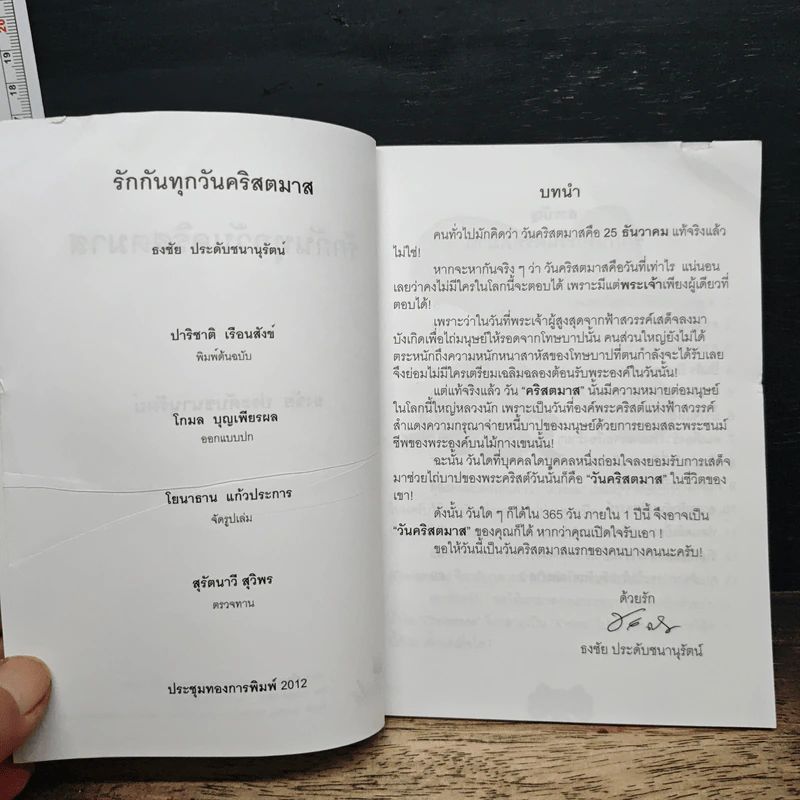 20
19
18
รักกันทุกวันคริสตมาส
ธงชัย ประดับชนานุรัตน์
ปาริชาติ เรือนสังข์
พิมพ์ต้นฉบับ
โกมล บุญเพียรผล
ออกแบบปก
โยนาธาน แก้วประการ
จัดรูปเล่ม
สุรัตนาวี สุวิพร
ตรวจทาน
ประชุมทองการพิมพ์ 2012
บทนำ
คนทั่วไปมักคิดว่า วันคริสตมาสคือ 25 ธันวาคม แท้จริงแล้ว
ไม่ใช่!
หากจะหากันจริง ๆ ว่า วันคริสตมาสคือวันที่เท่าไร แน่นอน
เลยว่าคงไม่มีใครในโลกนี้จะตอบได้ เพราะมีแต่พระเจ้าเพียงผู้เดียวที่
ตอบได้!
เพราะว่าในวันที่พระเจ้าผู้สูงสุดจากฟ้าสวรรค์เสด็จลงมา
บังเกิดเพื่อไถ่มนุษย์ให้รอดจากโทษบาปนั้น คนส่วนใหญ่ยังไม่ได้
ตระหนักถึงความหนักหนาสาหัสของโทษบาปที่ตนกำลังจะได้รับเลย
จึงย่อมไม่มีใครเตรียมเฉลิมฉลองต้อนรับพระองค์ในวันนั้น!
แต่แท้จริงแล้ว วัน “คริสตมาส” นั้นมีความหมายต่อมนุษย์
ในโลกนี้ใหญ่หลวงนัก เพราะเป็นวันที่องค์พระคริสต์แห่งฟ้าสวรรค์
สำแดงความกรุณาจ่ายหนี้บาปของมนุษย์ด้วยการยอมสละพระชนม์
ชีพของพระองค์บนไม้กางเขนนั้น!
ฉะนั้น วันใดที่บุคคลใดบุคคลหนึ่งถ่อมใจลงยอมรับการเสด็จ
มาช่วยไถ่บาปของพระคริสต์วันนั้นก็คือ “วันคริสตมาส” ในชีวิตของ
เขา!
ดังนั้น วันใด ๆ ก็ได้ใน 365 วัน ภายใน 1 ปีนี้ จึงอาจเป็น
“วันคริสตมาส” ของคุณก็ได้ หากว่าคุณเปิดใจรับเอา !
ขอให้วันนี้เป็นวันคริสตมาสแรกของคนบางคนนะครับ!
ด้วยรัก
ธงชัย ประดับชนานุรัตน์